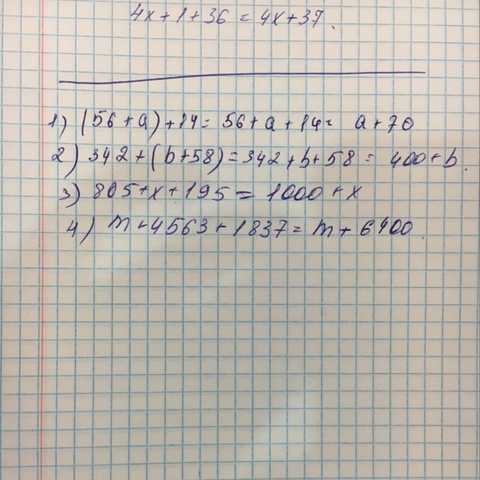 4x+1+36=4x+37.
1) (56+a)+14= 56+a+14= a+70
2) 342+(b+58)=342+b+58= 400+b.
3) 805+x+195=1000+x
4) m+4563+1837=m+6400.